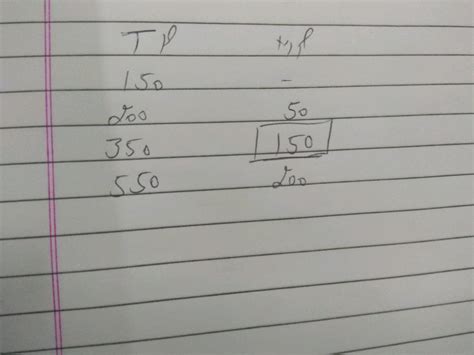 TP MP
150 -
200 50
350 150
550 200